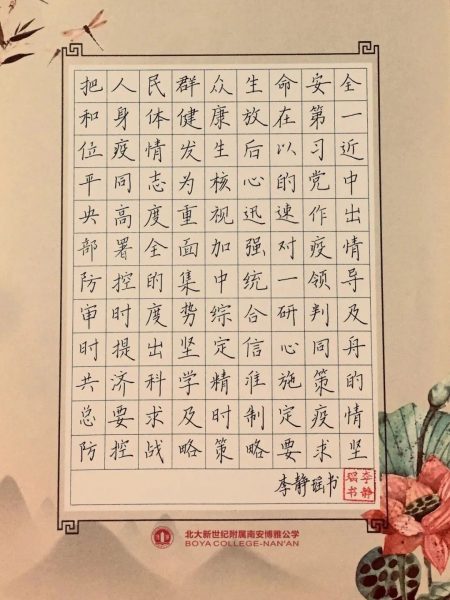 把人民群众生命安全
和身体健康放在第一
位疫情发生后以习近
平同志为核心的党中
央高度重视迅速作出
部署全面加强对疫情
防控的集中统一领导
审时度势综合研判及
时提出坚定信心同舟
共济科学精准施策的
总要求及时制定疫情
防控战略策略要求坚
李静瑶书
李静
瑶书
北大新世纪附属南安博雅公学
BOYA COLLEGE-NAN'AN